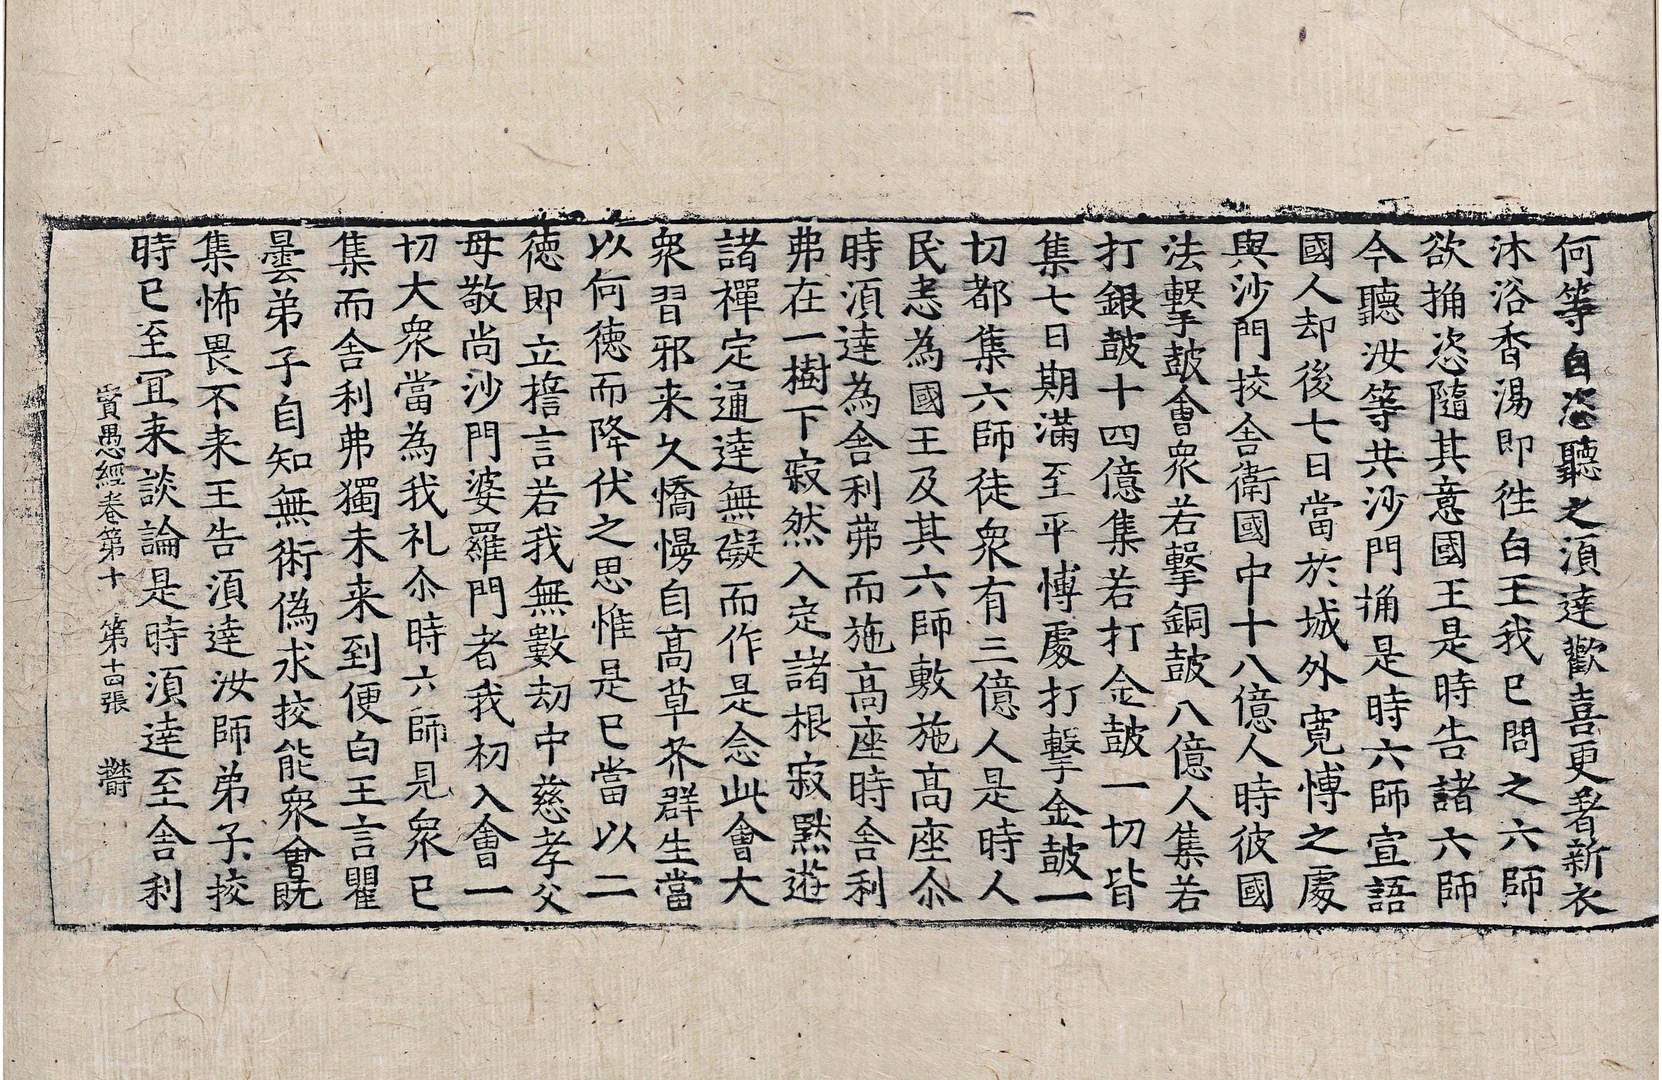 何等自恣聽之湏達歡喜更著新衣
沐浴香湯即徃白王我已問之六師
欲捔恣隨其意國王是時告諸六師
今聽汝等共沙門捔是時六師宣語
國人却後七日當於城外寬愽之處
與沙門挍舍衛國中十八億人時彼國
法擊皷會衆若擊銅皷八億人集若
打銀皷十四億集若打金皷一切皆
集七日期滿至平愽處打擊金皷一
切都集六師徒衆有三億人是時人
民悉為國王及其六師敷施高座尒
時湏達為舍利弗而施高座時舍利
弗在一樹下寂然入定諸根寂默遊
諸禪定通達無礙而作是念此會大
衆習邪来久憍慢自高草芥群生當
以何德而降伏之思惟是已當以二
德即立誓言若我無數劫中慈孝父
母敬尚沙門婆羅門者我初入會一
切大衆當為我礼尒時六師見衆已
集而舍利弗獨未来到便白王言瞿
曇弟子自知無術偽求挍能衆會既
集怖畏不来王告湏達汝師弟子挍
時已至冝来談論是時湏達至舍利
賢愚經卷第十 第十四張 欝